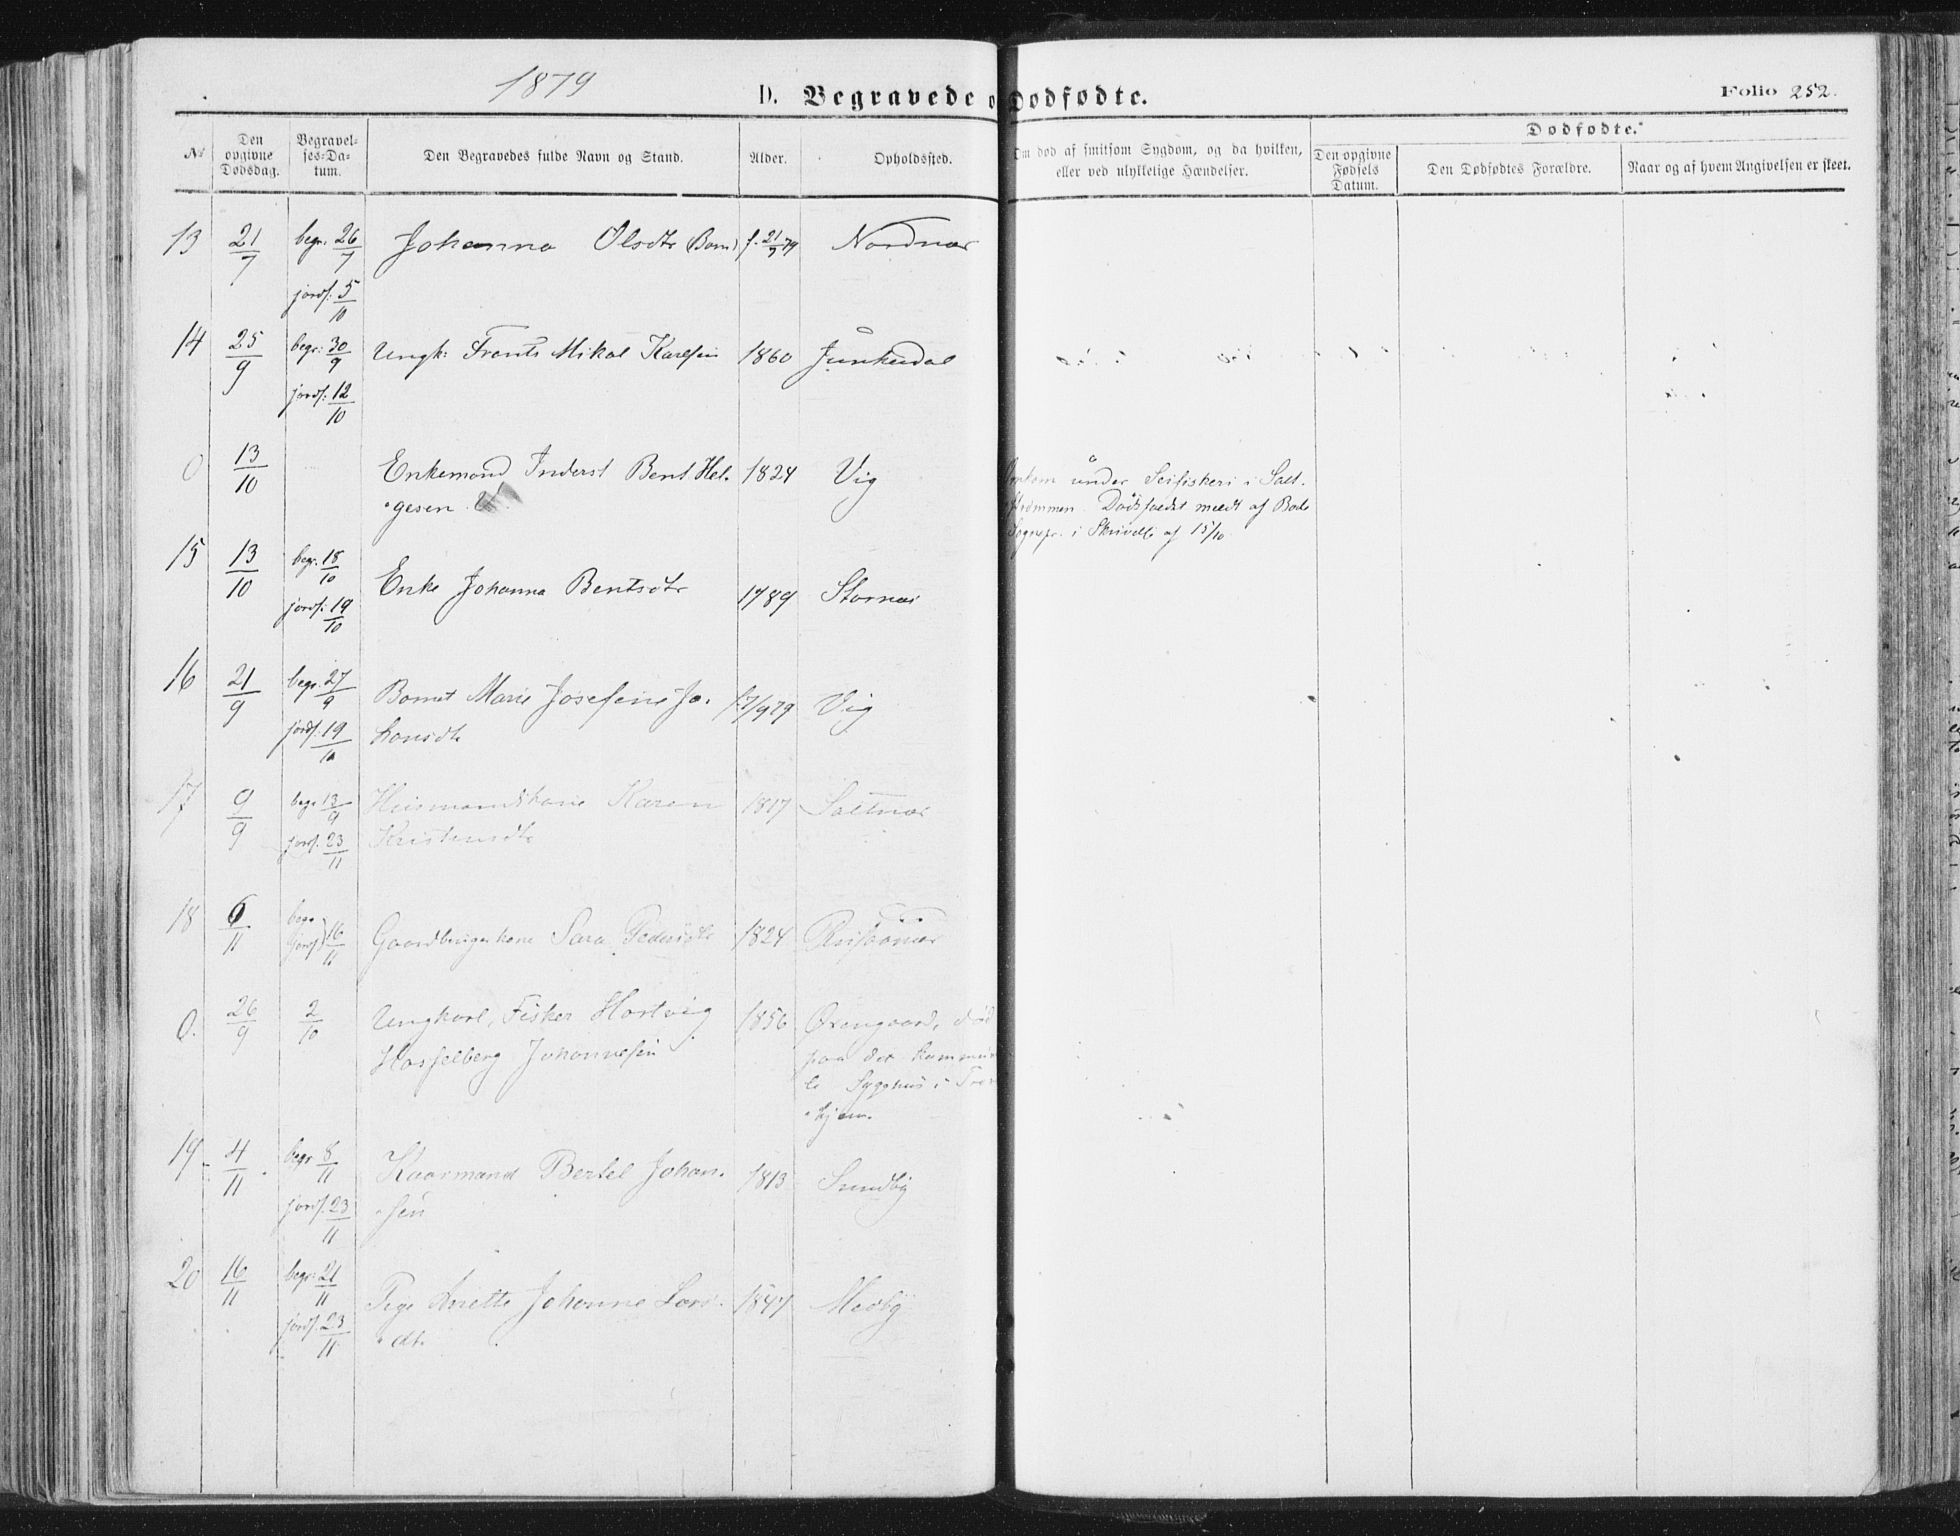 1879
D. Begravede o Dødfødte.
Folio 252.
Dødfødte.
No
Den opgivne Dødsdag.
Begravelses-Datum.
Den Begravedes fulde Navn og Stand.
Alder.
Opholdssted.
Om død af smitsom Sygdom, og da hvilken,
eller ved ulykkelige Hændelser.
Den opgivne Fødsels Datum.
Den Dødfødtes Forældre.
Naar og af hvem Angivelsen er skeet.
13 21/7 begr: 26/7 Johanna Olsdtr (Barn) f. 21/7 79 Nordnæs
jordf: 5/10
14 25/9 begr: 30/9 Ungk: Frants Mikal Karlsen 1860 Junkerdal
jordf: 12/10
0 13/10 Enkemand, Inderst Bent Hel- 1824 Vig
gesen
Omkom under Seifiskeri i Salt-
strømmen. Dødsfaldet meldt af Bodø
Sognepr. i Skrivelse af 15/10
15 13/10 begr. 18/10 Enke Johanna Bentsdtr 1789 Stornæs
jordf: 19/10
16 21/9 begr. 27/9 Barnet Marie Josefine Jo- 17/9 79 Vig
hansdt.
jordf: 19/10
17 9/9 begr 13/9 Husmandskone Karen 1817 Saltnæs
jordf. 23/11 Kristensdt.
18 6/11 begr jordf) 16/11 Gaardbrugerkone Sara Pedersdt. 1824
0. 26/9 2/10 Ungkarl, Fisker Hartvig 1856 Øxengaard, død
Hasselberg Johannesen paa det kommuna-
le Sygehus i Tron-
hjem.
19 4/11 begr 8/11 Kaarmand Bertel Johan- 1813 Sundby
jordf. 23/11 sen
20 16/11 begr: 21/11 Pige Anette Johanna Lars- 1847 Medby
jordf. 23/11 dt.